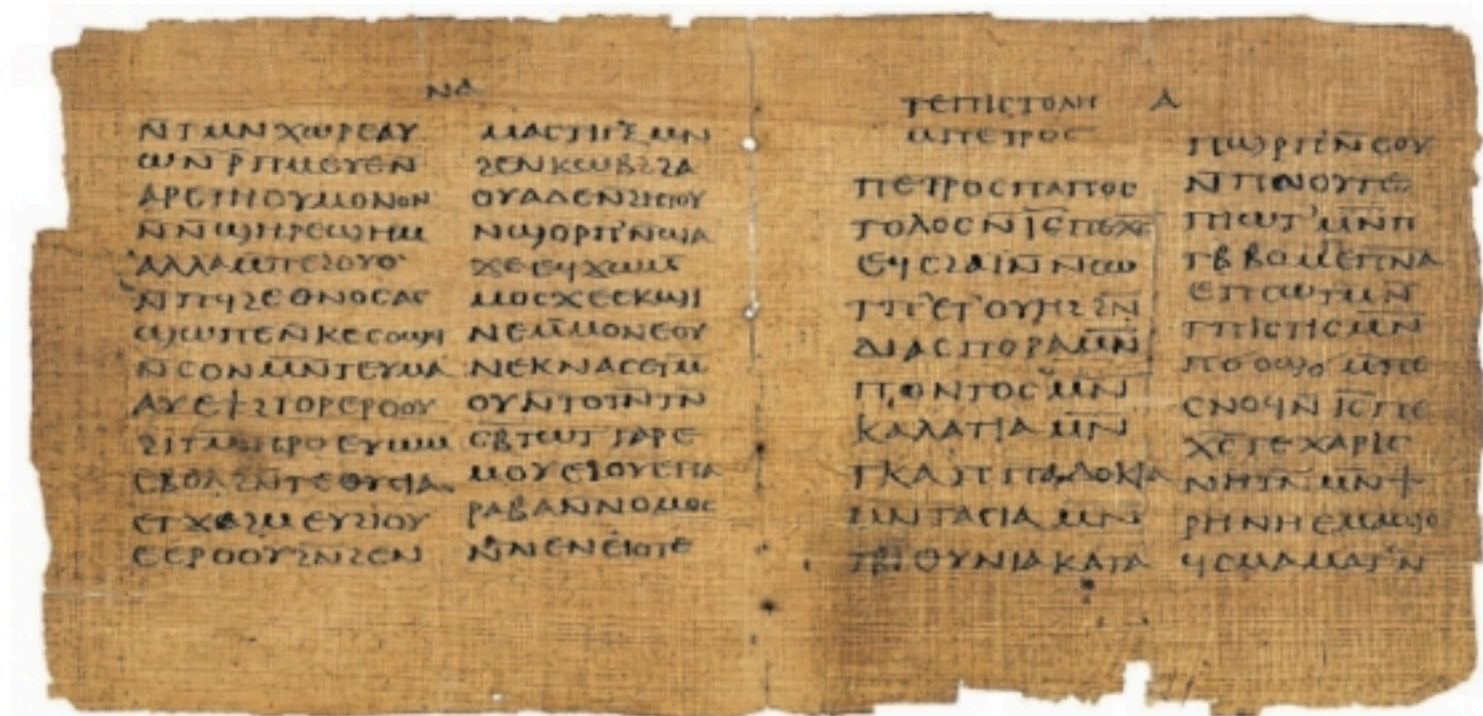 ⲛⲇ
ⲛ̄ⲧⲙⲛⲭⲱⲣⲉⲁⲩ
ⲱⲛ̄ⲣ̄ⲡⲙⲉⲩⲉⲛ̄
ⲁⲣⲉⲧⲏⲟⲩⲙⲟⲛⲟⲛ
ⲛ̄ⲛ̄ϣⲏⲣⲉϣⲏⲙ
ⲁⲗⲗⲁⲙⲡⲉϩⲟⲩⲟ
ⲛ̄ⲡϥϩⲉⲑⲛⲟⲥⲁⲥ
ϣⲱⲡⲉⲛ̄ⲕⲉⲥⲁϣϥ
ⲛ̄ⲥⲟⲛⲙⲛ̄ⲧⲉⲩⲙⲁ
ⲁⲩⲉϯϩⲧⲟⲣⲉⲣⲟⲟⲩ
ϩⲓⲧⲙ̄ⲡⲣⲟⲉⲩⲱⲙ
ⲉⲃⲟⲗϩⲛ̄ⲧⲉⲑⲩⲥⲓⲁ
ⲉⲧϫⲁϩⲙⲉⲩϩⲓⲟⲩ
ⲉⲉⲣⲟⲟⲩϩⲛ̄ϩⲉⲛ
ⲙⲁⲥⲧⲓⲅⲝ̄ⲙⲛ
ϩⲉⲛⲕⲱⲃϩϩⲁ
ⲟⲩⲁⲇⲉⲛ̄ϩⲏⲧⲟⲩ
ⲛϣⲟⲣⲡ'ⲛ̄ϣⲁ
ϫⲉⲉϥϫⲱⲙ̄
ⲙⲟⲥϫⲉⲉⲕϣⲓ
ⲛⲉⲙ̄ⲙⲟⲛⲉⲟⲩ
ⲛⲉⲕⲛⲁⲥⲉⲓⲙ
ⲟⲩⲛ̄ⲧⲟⲧⲛ̄ⲧⲛ̄
ⲥⲃⲧⲱⲧⲅⲁⲣⲉ
ⲙⲟⲩⲉϩⲟⲩⲉⲡⲁ
ⲣⲁⲃⲁⲛ̄ⲛⲟⲙⲟⲥ
ⲛ̄ⲛⲉⲛⲉⲓⲟⲧⲉ
ⲧⲉⲡⲓⲥⲧⲟⲗⲏ ⲁ
ⲙⲡⲉⲧⲣⲟⲥ
ⲡⲉⲧⲣⲟⲥⲡⲁⲡⲟⲥ
ⲧⲟⲗⲟⲥⲛ̄ⲓ̄ⲥ̄ⲡⲉⲭ̄ⲥ̄
ⲉϥⲥϩⲁⲓⲛ̄ⲛⲥⲱ
ⲧⲡ'ⲉⲧ'ⲟⲩⲏϩϩⲛ̄
ⲇⲓⲁⲥⲡⲟⲣⲁⲙⲛ̄
ⲡⲟⲛⲧⲟⲥⲙⲛ
ⲕⲁⲗⲁⲧⲓⲁⲙⲛ̄
ⲧⲕⲁⲡⲡⲁⲇⲟⲕⲓⲁ
ⲙⲛⲧⲁⲥⲓⲁⲙⲛ̄
ⲧⲃⲓⲑⲩⲛⲓⲁⲕⲁⲧⲁ
ⲡϣⲣⲡ'ⲛ̄ⲥⲟⲩ
ⲛ̄ⲡⲛⲟⲩⲧⲉ
ⲡⲓⲱⲧ'ⲙⲛ̄ⲡ
ⲧⲃⲃⲟⲙ̄ⲡⲉⲡ̄ⲛ̄ⲁ̄
ⲉⲡⲥⲱⲧⲙ̄ⲛ̄
ⲧⲡⲓⲥⲧⲓⲥⲙⲛ̄
ⲡϭⲟϣϭϣ̄ⲙ̄ⲡⲉ
ⲥⲛⲟϥⲛ̄ⲓ̄ⲥ̄ⲡⲉ
ⲭ̄ⲥ̄ⲧⲉⲭⲁⲣⲓⲥ
ⲛⲏⲧⲛ̄ⲙⲛ̄ϯ
ⲣⲏⲛⲏⲉⲙⲁϣⲟ
ϥⲥⲙⲁⲙⲁⲁⲧ'ⲛ̄